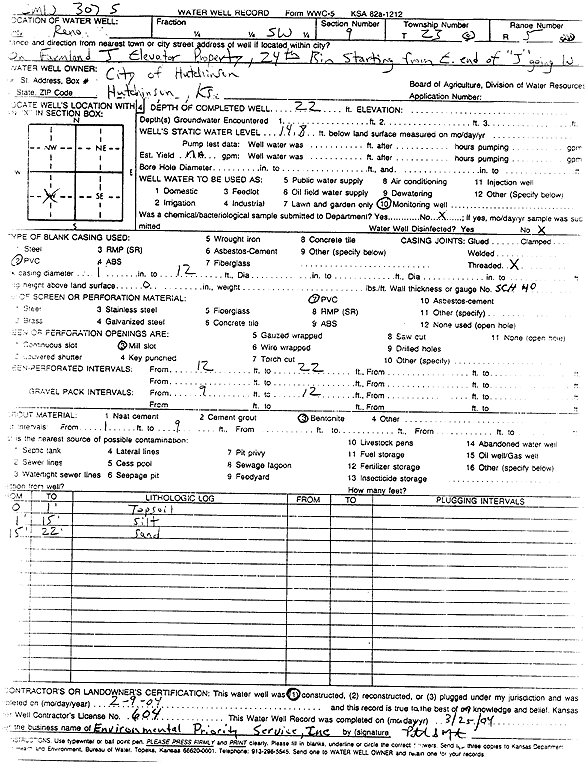 307 S WATER WELL RECORD Form WWC-5 KSA 82a-1212
LOCATION OF WATER WELL: Fraction Section Number Township Number Range Number
Reno SW 9 T 23 S R 5
ance and direction from nearest town or city street address of well if located within city?
On Farmland J Elevator Property, 24th Rim Starting from E. end of "J" going W
WATER WELL OWNER: City of Hutchinson
St. Address, Box # Board of Agriculture, Division of Water Resource
State, ZIP Code Hutchinson, Ks. Application Number:
OCATE WELL'S LOCATION WITH 4 DEPTH OF COMPLETED WELL 22 ft. ELEVATION:
"X" IN SECTION BOX: Depth(s) Groundwater Encountered 1. ft. 2. ft. 3. ft.
N WELL'S STATIC WATER LEVEL 14.8 ft. below land surface measured on mo/day/yr
Pump test data: Well water was ft. after hours pumping gpm
NW NE Est. Yield N.A. gpm: Well water was ft. after hours pumping gpm
Bore Hole Diameter in. to ft., and in. to ft.
W E WELL WATER TO BE USED AS: 5 Public water supply 8 Air conditioning 11 Injection well
1 Domestic 3 Feedlot 6 Oil field water supply 9 Dewatering 12 Other (Specify below)
SE 2 Irrigation 4 Industrial 7 Lawn and garden only 10 Monitoring well
Was a chemical/bacteriological sample submitted to Department? Yes No X ; If yes, mo/day/yr sample was sub
S mitted Water Well Disinfected? Yes No X
TYPE OF BLANK CASING USED: 5 Wrought iron 8 Concrete tile CASING JOINTS: Glued Clamped
1 Steel 3 RMP (SR) 6 Asbestos-Cement 9 Other (specify below) Welded
2 PVC 4 ABS 7 Fiberglass Threaded X
casing diameter 1 in. to 12 ft., Dia in. to ft., Dia in. to ft.
height above land surface 0 in., weight lbs./ft. Wall thickness or gauge No. SCH 40
OF SCREEN OR PERFORATION MATERIAL: 7 PVC 10 Asbestos-cement
1 Steel 3 Stainless steel 5 Fiberglass 8 RMP (SR) 11 Other (specify)
2 Brass 4 Galvanized steel 6 Concrete tile 9 ABS 12 None used (open hole)
EEN OR PERFORATION OPENINGS ARE: 5 Gauzed wrapped 8 Saw cut 11 None (open hole)
1 Continuous slot 3 Mill slot 6 Wire wrapped 9 Drilled holes
2 Louvered shutter 4 Key punched 7 Torch cut 10 Other (specify)
EEN-PERFORATED INTERVALS: From 12 ft. to 22 ft., From ft. to ft.
From ft. to ft., From ft. to ft.
GRAVEL PACK INTERVALS: From 9 ft. to 12 ft., From ft. to ft.
From ft. to ft., From ft. to ft.
GROUT MATERIAL: 1 Neat cement 2 Cement grout 3 Bentonite 4 Other
Intervals From 1 ft. to 9 ft., From ft. to ft., From ft. to ft.
t is the nearest source of possible contamination: 10 Livestock pens 14 Abandoned water well
1 Septic tank 4 Lateral lines 7 Pit privy 11 Fuel storage 15 Oil well/Gas well
2 Sewer lines 5 Cess pool 8 Sewage lagoon 12 Fertilizer storage 16 Other (specify below)
3 Watertight sewer lines 6 Seepage pit 9 Feedyard 13 Insecticide storage
ction from well? How many feet?
OM TO LITHOLOGIC LOG FROM TO PLUGGING INTERVALS
0 1' Topsoil
1' 15' silt
15' 22' sand
CONTRACTOR'S OR LANDOWNER'S CERTIFICATION: This water well was (1) constructed, (2) reconstructed, or (3) plugged under my jurisdiction and was
leted on (mo/day/year) 2-9-04 and this record is true to the best of my knowledge and belief. Kansas
er Well Contractor's License No. 604 This Water Well Record was completed on (mo/day/yr) 3/25/04
r the business name of Environmental Priority Service, Inc by (signature)
INSTRUCTIONS: Use typewriter or ball point pen. PLEASE PRESS FIRMLY and PRINT clearly. Please fill in blanks, underline or circle the correct answers. Send top three copies to Kansas Department
of Health and Environment, Bureau of Water, Topeka, Kansas 66620-0001. Telephone: 913-296-5545. Send one to WATER WELL OWNER and retain one for your records.